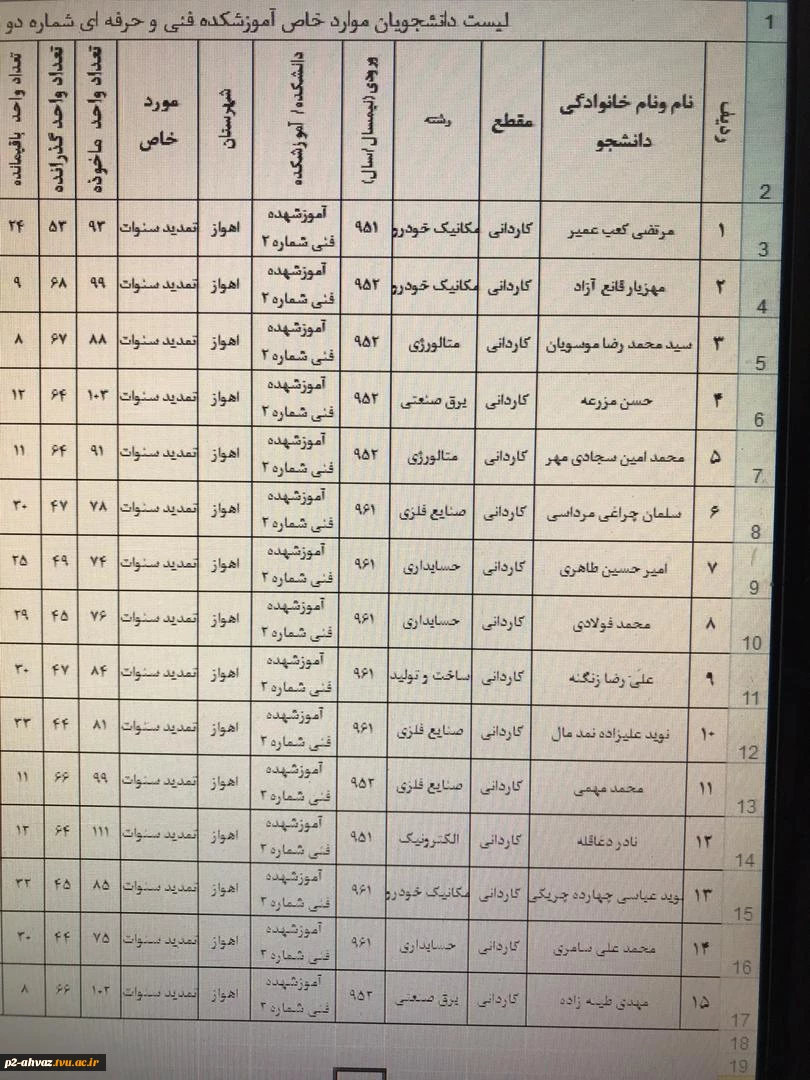 1 لیست دانشجویان موارد خاص آموزشکده فنی و حرفه ای شماره دو
2 ردیف نام ونام خانوادگی دانشجو مقطع رشته ورودی(نیمسال/سال) دانشکده/ آموزشکده شهرستان مورد خاص تعداد واحد ماخوذه تعداد واحد گذرانده تعداد واحد باقیمانده
3 ۱ مرتضی کعب عمیر کاردانی مکانیک خودرو ۹۵۱ آموزشهده فنی شماره ۲ اهواز تمدید سنوات ۹۳ ۵۳ ۲۴
4 ۲ مهزیار قانع آزاد کاردانی مکانیک خودرو ۹۵۲ آموزشهده فنی شماره ۲ اهواز تمدید سنوات ۹۹ ۶۸ ۹
5 ۳ سید محمد رضا موسویان کاردانی متالورژی ۹۵۲ آموزشهده فنی شماره ۲ اهواز تمدید سنوات ۸۸ ۶۷ ۸
6 ۴ حسن مزرعه کاردانی برق صنعتی ۹۵۲ آموزشهده فنی شماره ۲ اهواز تمدید سنوات ۱۰۳ ۶۴ ۱۲
7 ۵ محمد امین سجادی مهر کاردانی متالورژی ۹۵۲ آموزشهده فنی شماره ۲ اهواز تمدید سنوات ۹۱ ۶۴ ۱۱
8 ۶ سلمان چراغی مرداسی کاردانی صنایع فلزی ۹۶۱ آموزشهده فنی شماره ۲ اهواز تمدید سنوات ۷۸ ۴۷ ۳۰
9 ۷ امیر حسین طاهری کاردانی حسابداری ۹۶۱ آموزشهده فنی شماره ۲ اهواز تمدید سنوات ۷۴ ۴۹ ۲۵
10 ۸ محمد فولادی کاردانی حسابداری ۹۶۱ آموزشهده فنی شماره ۲ اهواز تمدید سنوات ۷۶ ۴۵ ۲۹
11 ۹ علی رضا زنگنه کاردانی ساخت و تولید ۹۶۱ آموزشهده فنی شماره ۲ اهواز تمدید سنوات ۸۴ ۴۷ ۳۰
12 ۱۰ نوید علیزاده نمد مال کاردانی صنایع فلزی ۹۶۱ آموزشهده فنی شماره ۲ اهواز تمدید سنوات ۸۱ ۴۴ ۳۳
13 ۱۱ محمد مهمی کاردانی صنایع فلزی ۹۵۲ آموزشهده فنی شماره ۲ اهواز تمدید سنوات ۹۹ ۶۶ ۱۱
14 ۱۲ نادر دغاقله کاردانی الکترونیک ۹۵۱ آموزشهده فنی شماره ۲ اهواز تمدید سنوات ۱۱۱ ۶۴ ۱۲
15 ۱۳ نوید عباسی چهارده چریکی کاردانی مکانیک خودرو ۹۶۱ آموزشهده فنی شماره ۲ اهواز تمدید سنوات ۸۵ ۴۵ ۳۲
16 ۱۴ محمد علی سامری کاردانی حسابداری ۹۶۱ آموزشهده فنی شماره ۲ اهواز تمدید سنوات ۷۵ ۴۴ ۳۰
17 ۱۵ مهدی طیبه زاده کاردانی برق صنعتی ۹۵۲ آموزشهده فنی شماره ۲ اهواز تمدید سنوات ۱۰۲ ۶۶ ۸
18
19
p2-ahvaz.tvu.ac.ir